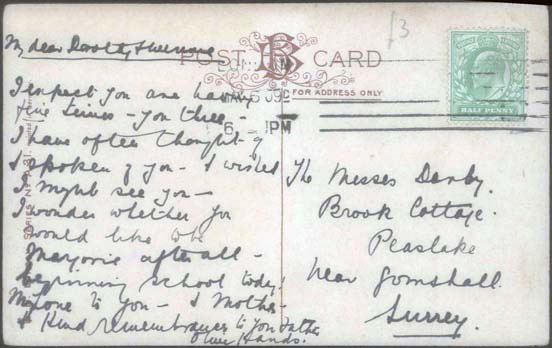 My dear Dorothy &
POST CARD
FOR ADDRESS ONLY
LONDON
MY 5 09
6. 1PM
HALF PENNY
£3
I expect you are having
fine times – you three –
I have often thought of
& spoken of you – & wished
I might see you –
I wonder whether you
would like to be
Marjorie after all –
beginning school today!
My love to you – & Mother –
& kind remembrances to your father
Olive Hands.
The Misses Danby.
Brook Cottage.
Peaslake
Near Gomshall.
Surrey.